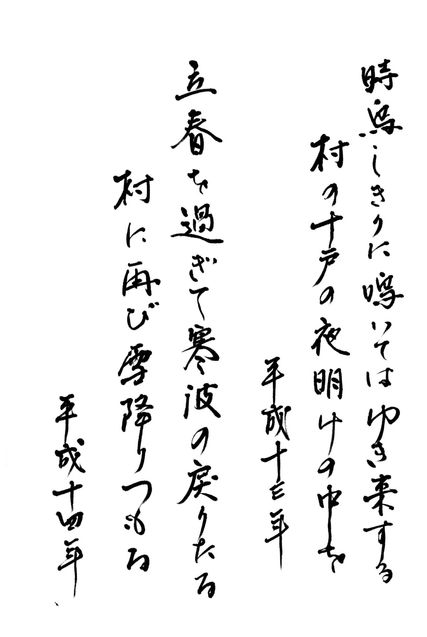 時鳥しきりに鳴いてはゆき来する
村の十戸の夜明けの中を
平成十三年
立春を過ぎて寒波の戻りたる
村に再び雪降りつもる
平成十四年